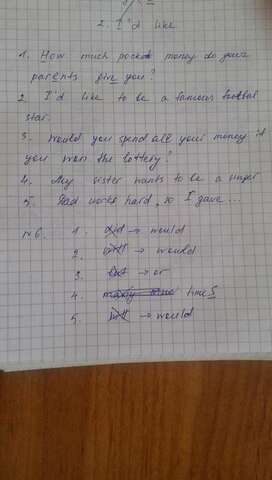 2. I'd like
1. How much pocket money do your
parents give you?
2 I'd like to be a famous football
star.
3. Would you spend all your money if
you won the lottery?
4. My sister wants to be a singer
5. Dad works hard, so I gave...
N6. 1. did → would
2. will → would
3. but → or
4. many time times
5. will → would